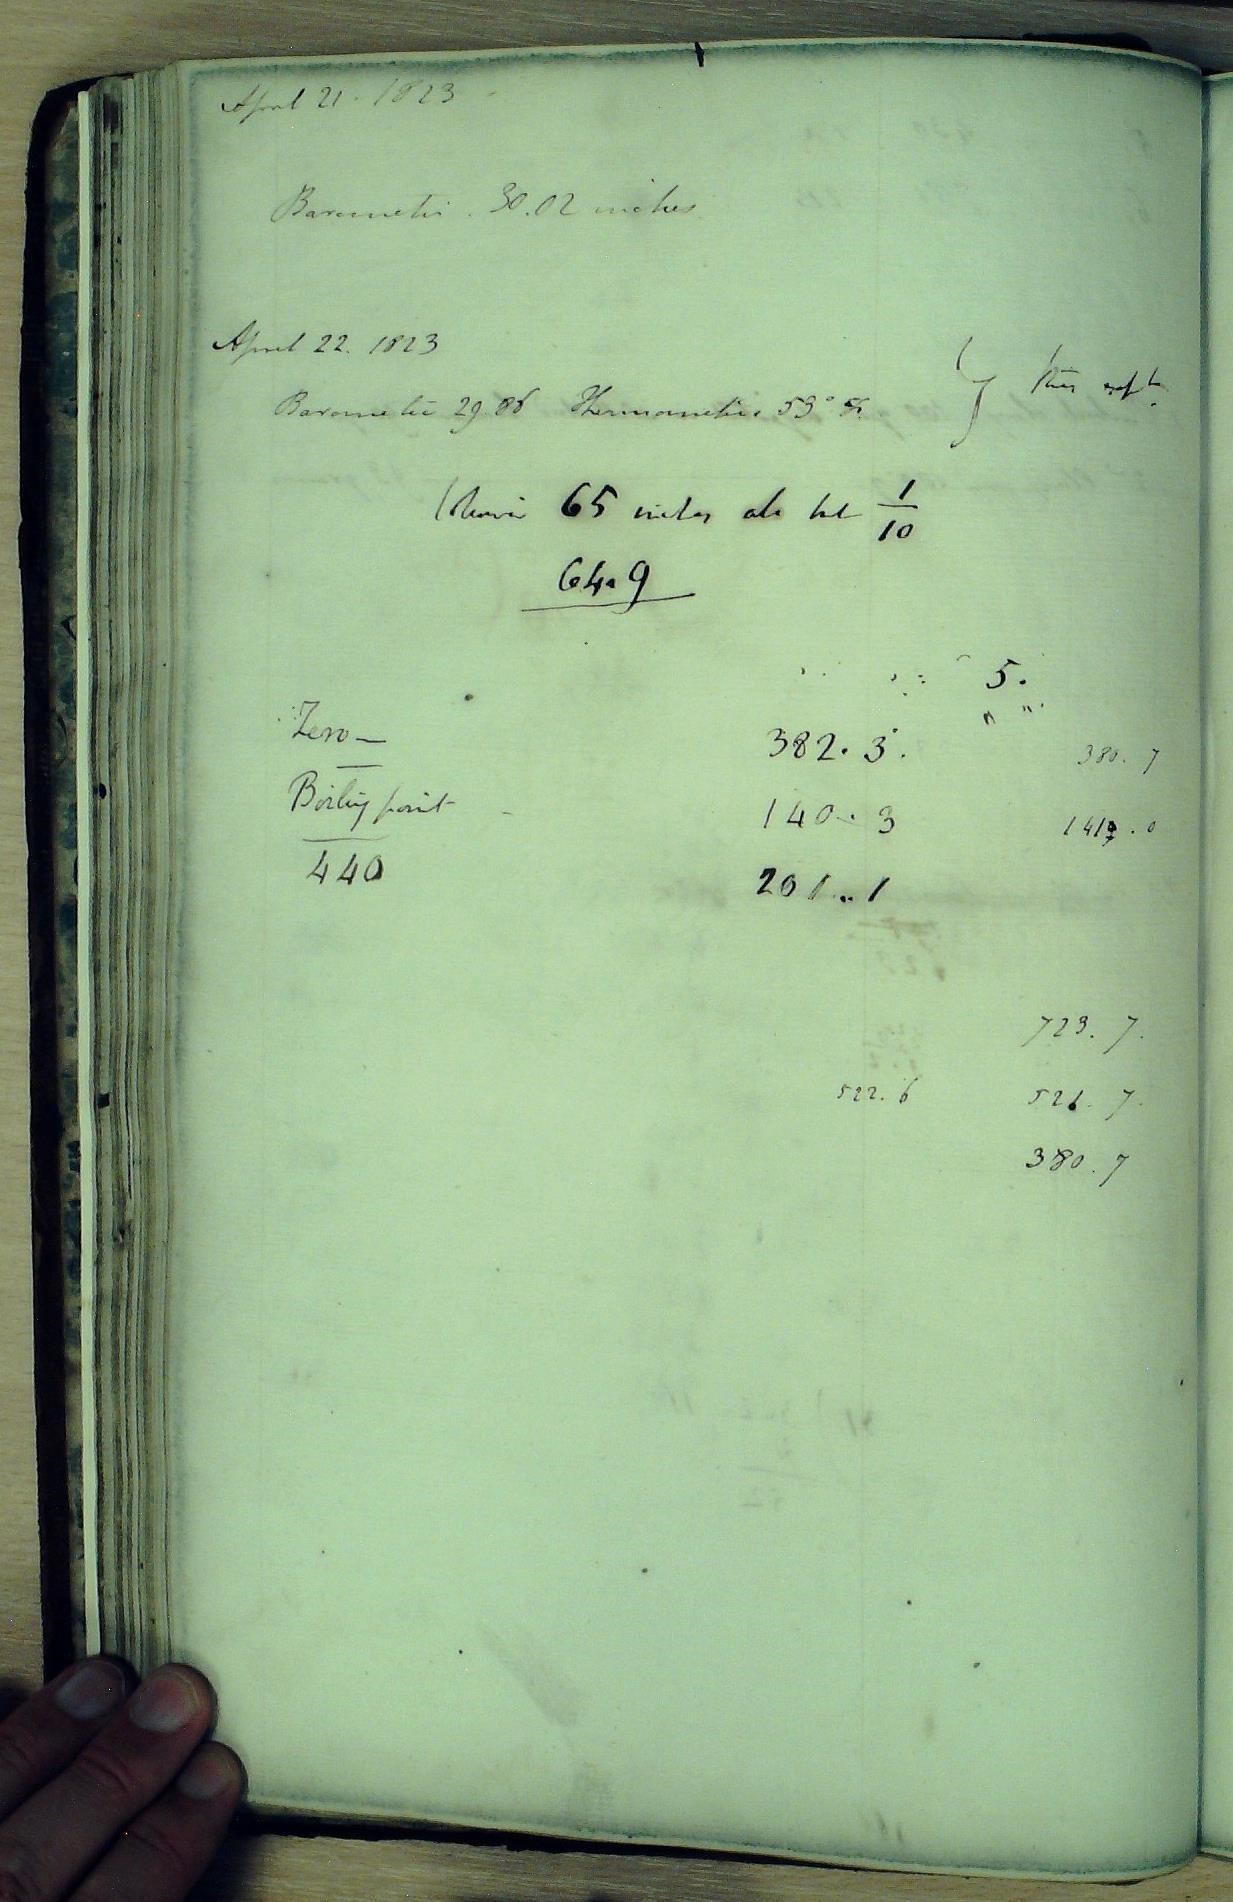 April 21. 1823
Barometer. 30.02 inches
April 22. 1823
Barometer 29.86 Thermometer 53°
65 inches all but 1/10
64.9
5.
Zero 382.3. 380.7
Boiling point 140.3 141.0
440 201.1
723.7.
522.6 521.7.
380.7